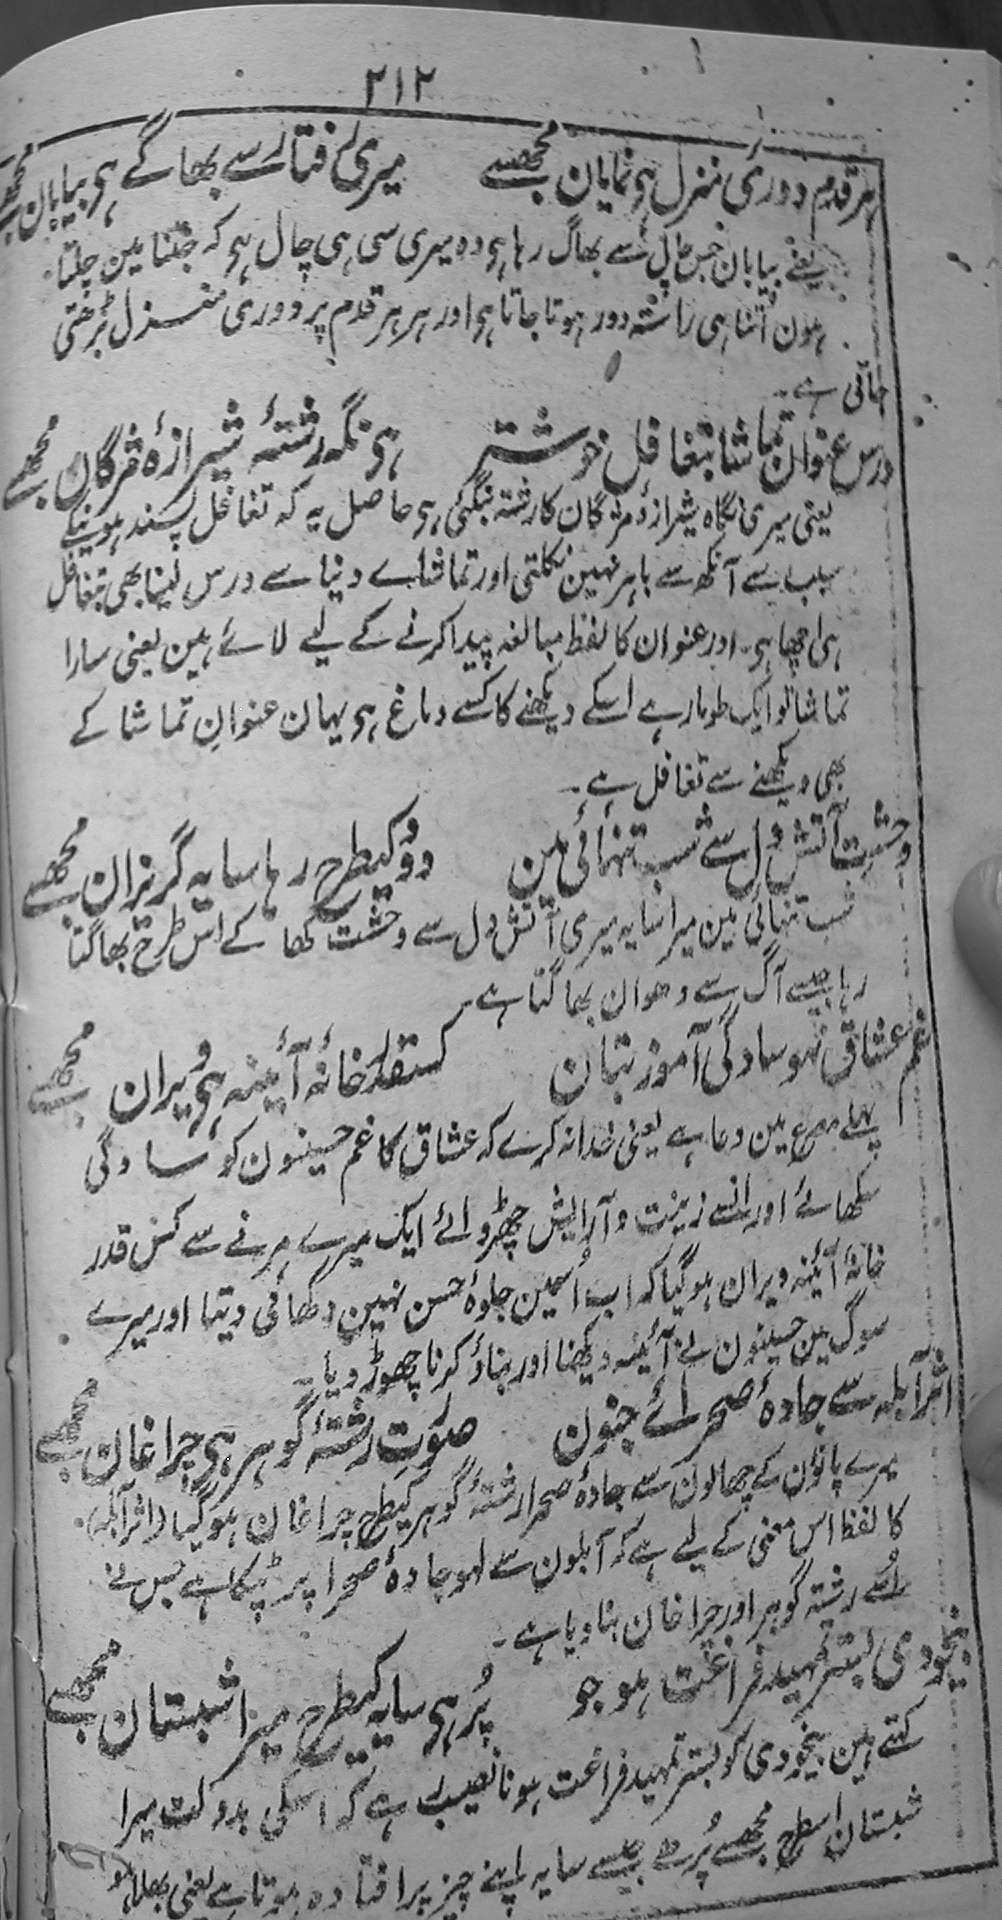 ۲۱۲
ہر قدم دوریٔ منزل ہی نمایان مجھسے میری رفتار سے بھاگے ہی بیابان مجھسے
یعنے بیابان جس چال سے بھاگ رہا ہی وہ میری سی ہی چال ہی کہ جتنا مین چلتا
ہون اُتنا ہی راستہ دور ہوتا جاتا ہی اور ہر ہر قدم پر دوری منزل بڑھتی
جاتی ہے۔
درس عنوان تماشا بتغافل خوشتر ہی نگہ رشتۂ شیرازۂ مژگان مجھسے
یعنی میری نگاہ شیرازۂ مژگان کا رشتہ بنگئی ہی حاصل یہ کہ تغافل پسند ہونیکے
سبب سے آنکھ سے باہر نہین نکلتی اور تماشاے دنیا سے درس لینا بھی بتغافل
ہی اچھا ہی۔ اور عنوان کا لفظ مبالغہ پیدا کرنے کے لیے لائے ہین یعنی سارا
تماشا تو ایک طومار ہے اسکے دیکھنے کا کسے دماغ ہی یہان عنوانِ تماشا کے
بھی دیکھنے سے تغافل ہے۔
وحشتِ آتش دل سے شب تنہائی مین دود کیطرح رہا سایہ گریزان مجھسے
شب تنہائی مین میرا سایہ میری آتش دل سے وحشت کھا کے اس طرح بھاگتا
رہا جیسے آگ سے دھوان بھاگتا ہے۔
غم عشاق نہو سادگی آموز بتان کسقدر خانۂ آئینہ ہی ویران مجھسے
پہلے مصرع مین دعا ہے یعنی خدا نہ کرے کہ عشاق کا غم حسینون کو سادگی
سکھائے اور انسے زینت و آرایش چھڑوائے ایک میرے مرنے سے کس قدر
خانۂ آئینہ ویران ہوگیا کہ اب اُسمین جلوۂ حسن نہین دکھائی دیتا اور میرے
سوگ مین حسینون نے آئینہ دیکھنا اور بناؤ کرنا چھوڑ دیا۔
اثر آبلہ سے جادۂ صحرائے جنون صورتِ رشتۂ گوہر ہی چراغان مجھسے
میرے پانؤن کے چھالون سے جادۂ صحرا رشتۂ گوہر کیطرح چراغان ہوگیا (اثر آبلہ)
کا لفظ اس معنی کے لیے ہے کہ آبلون سے لہو جادۂ صحرا پر ٹپکا ہے جس نے
اُسے رشتۂ گوہر اور چراغان بنا دیا ہے۔
بیخودی بستر تمہید فراغت ہو جو پُر ہی سایہ کیطرح میرا شبستان مجھسے
کہتے ہین بیخودی کو بستر تمہید فراغت ہونا نصیب ہے کہ اسکی بدولت میرا
شبستان اسطرح مجھسے پُر ہے جیسے سایہ اپنے چیز پر افتادہ ہوتا ہے یعنی